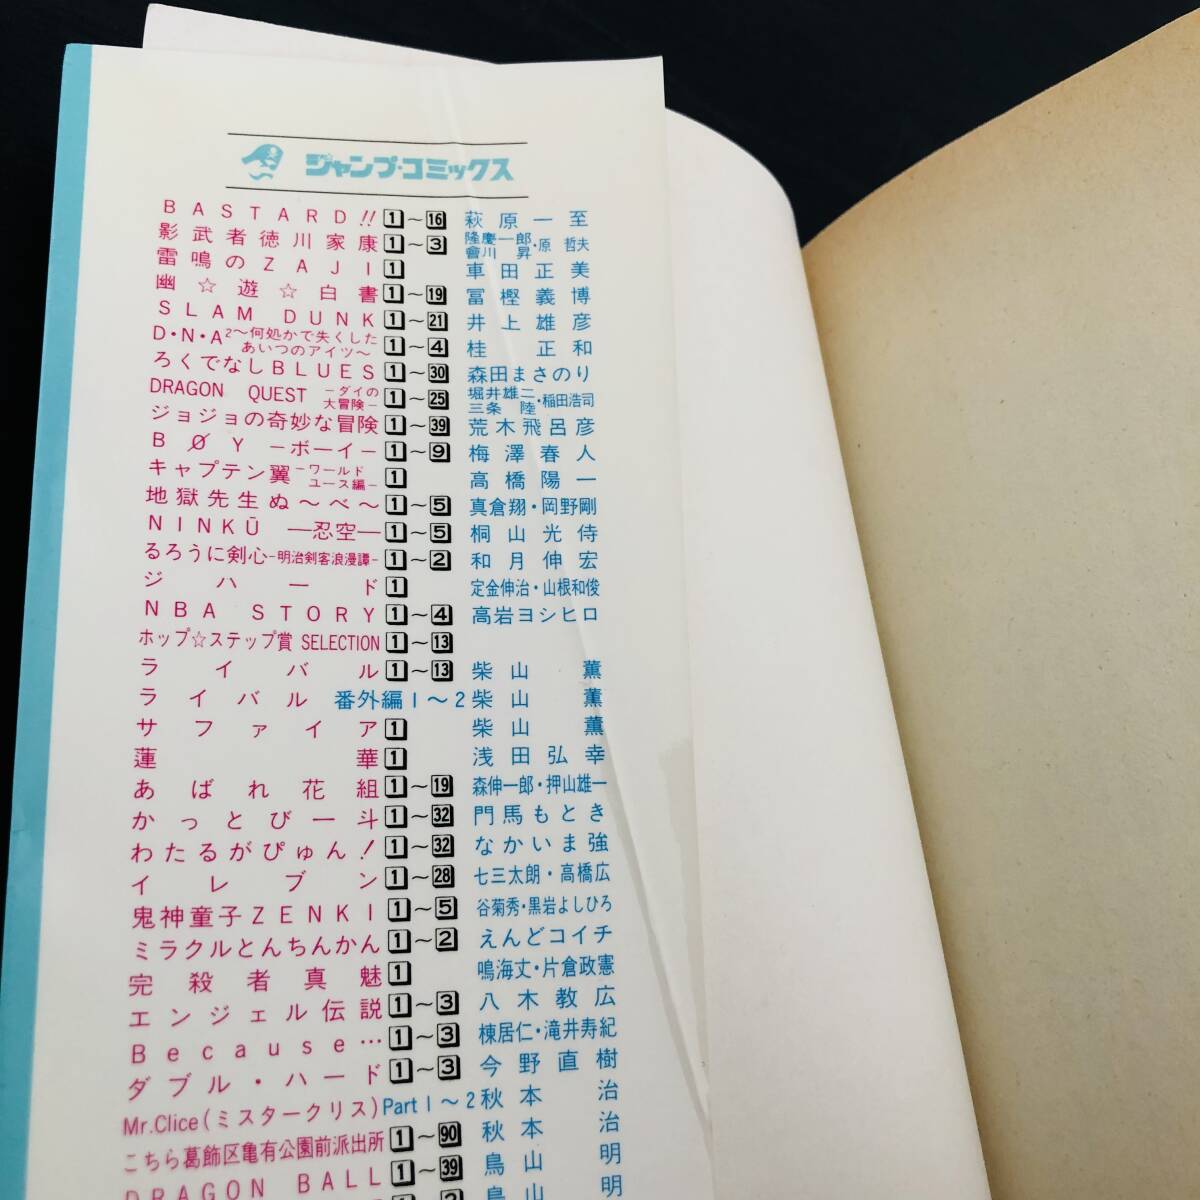 ジャンプ・コミックス
BASTARD!! 1〜16 萩原一至
影武者徳川家康 1〜3 隆慶一郎・會川昇・原哲夫
雷鳴のZAJI 1 車田正美
幽☆遊☆白書 1〜19 冨樫義博
SLAM DUNK 1〜21 井上雄彦
D・N・A²〜何処かで失くしたあいつのアイツ〜 1〜4 桂正和
ろくでなしBLUES 1〜30 森田まさのり
DRAGON QUEST－ダイの大冒険－ 1〜25 堀井雄二・三条陸・稲田浩司
ジョジョの奇妙な冒険 1〜39 荒木飛呂彦
BØY－ボーイ－ 1〜9 梅澤春人
キャプテン翼－ワールドユース編－ 1 高橋陽一
地獄先生ぬ〜べ〜 1〜5 真倉翔・岡野剛
NINKŪ―忍空― 1〜5 桐山光侍
るろうに剣心－明治剣客浪漫譚－ 1〜2 和月伸宏
ジハード 1 定金伸治・山根和俊
NBA STORY 1〜4 高岩ヨシヒロ
ホップ☆ステップ賞 SELECTION 1〜13
ライバル 1〜13 柴山薫
ライバル 番外編1〜2 柴山薫
サファイア 1 柴山薫
蓮華 1 浅田弘幸
あばれ花組 1〜19 森伸一郎・押山雄一
かっとび一斗 1〜32 門馬もとき
わたるがぴゅん! 1〜32 なかいま強
イレブン 1〜28 七三太朗・高橋広
鬼神童子ZENKI 1〜5 谷菊秀・黒岩よしひろ
ミラクルとんちんかん 1〜2 えんどコイチ
完殺者真魅 1 鳴海丈・片倉政憲
エンジェル伝説 1〜3 八木教広
Because… 1〜3 棟居仁・滝井寿紀
ダブル・ハード 1〜3 今野直樹
Mr.Clice(ミスタークリス) Part1〜2 秋本治
こちら葛飾区亀有公園前派出所 1〜90 秋本治
DRAGON BALL 1〜39 鳥山明
鳥山明